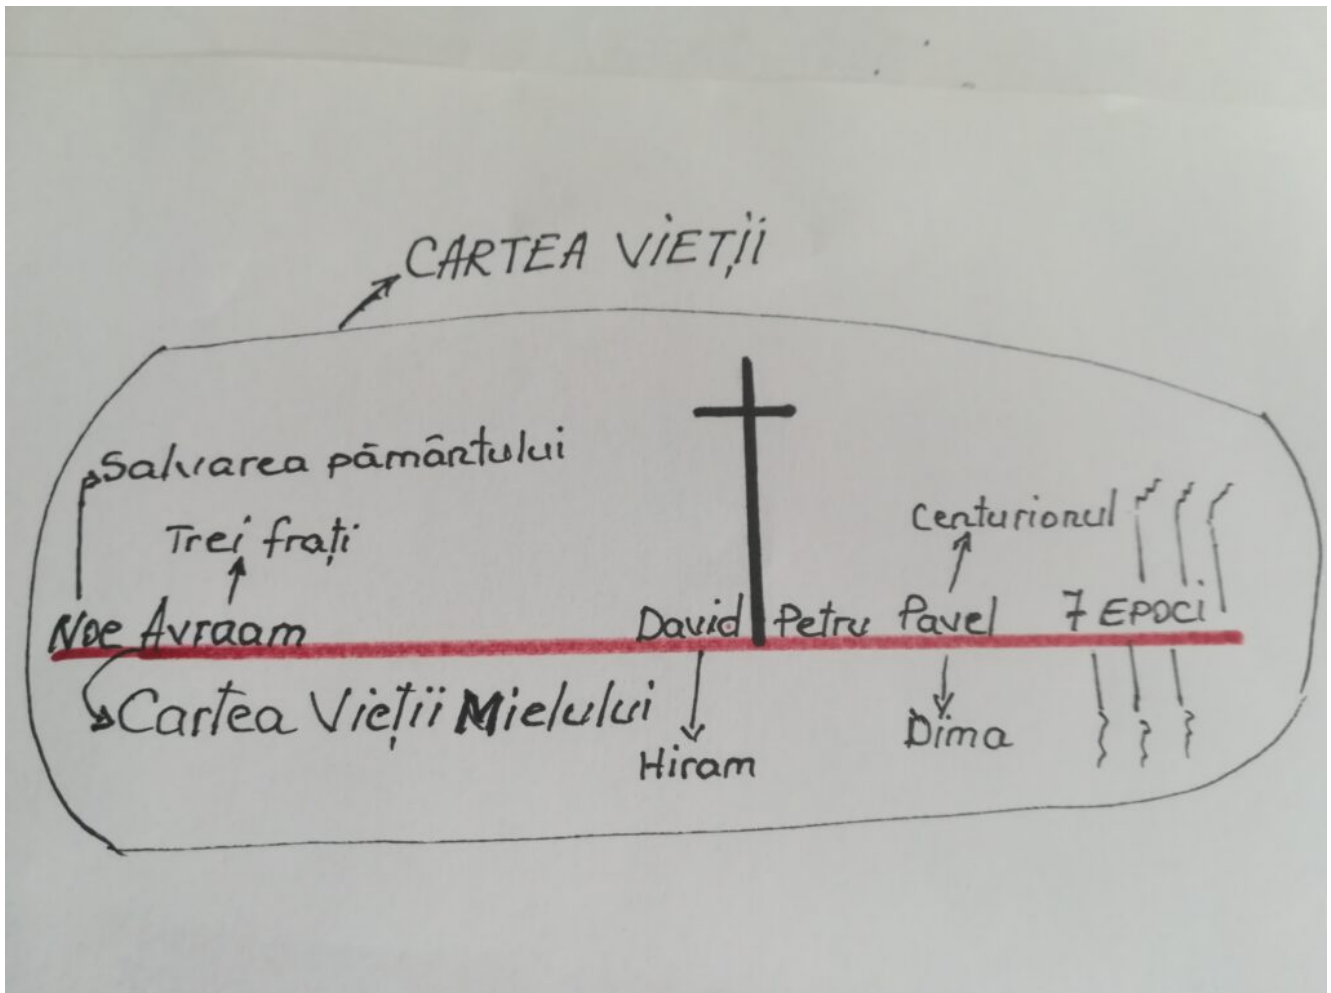 CARTEA VIEȚII
Salvarea pământului
Trei frați
Centurionul
Noe Avraam David Petru Pavel 7 EPOCI
Cartea Vieții Mielului
Hiram
Dima